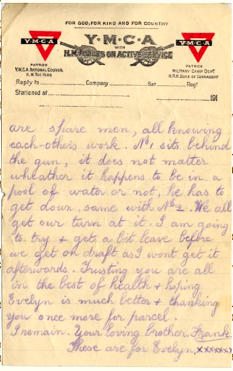 FOR GOD, FOR KING AND FOR COUNTRY
Y·M·C·A
WITH
H.M. FORCES ON ACTIVE SERVICE
YMCA
YMCA
PATRON
Y.M.C.A. NATIONAL COUNCIL
H.M. THE KING
PATRON
MILITARY CAMP DEPT
H.R.H. DUKE OF CONNAUGHT
Reply to Company Bat Regt
Stationed at 191
are spare men, all knowing
each-others work. No 1 sits behind
the gun, it does not matter
wheather it happens to be in a
pool of water or not, he has to
get down, same with No 2. We all
get our turn at it. I am going
to try & get a bit leave before
we get on draft as I wont get it
afterwords. Trusting you are all
in the best of health & hoping
Evelyn is much better & thanking
you once more for parcel.
I remain. Your loving brother. Frank
These are for Evelyn, xxxxxx